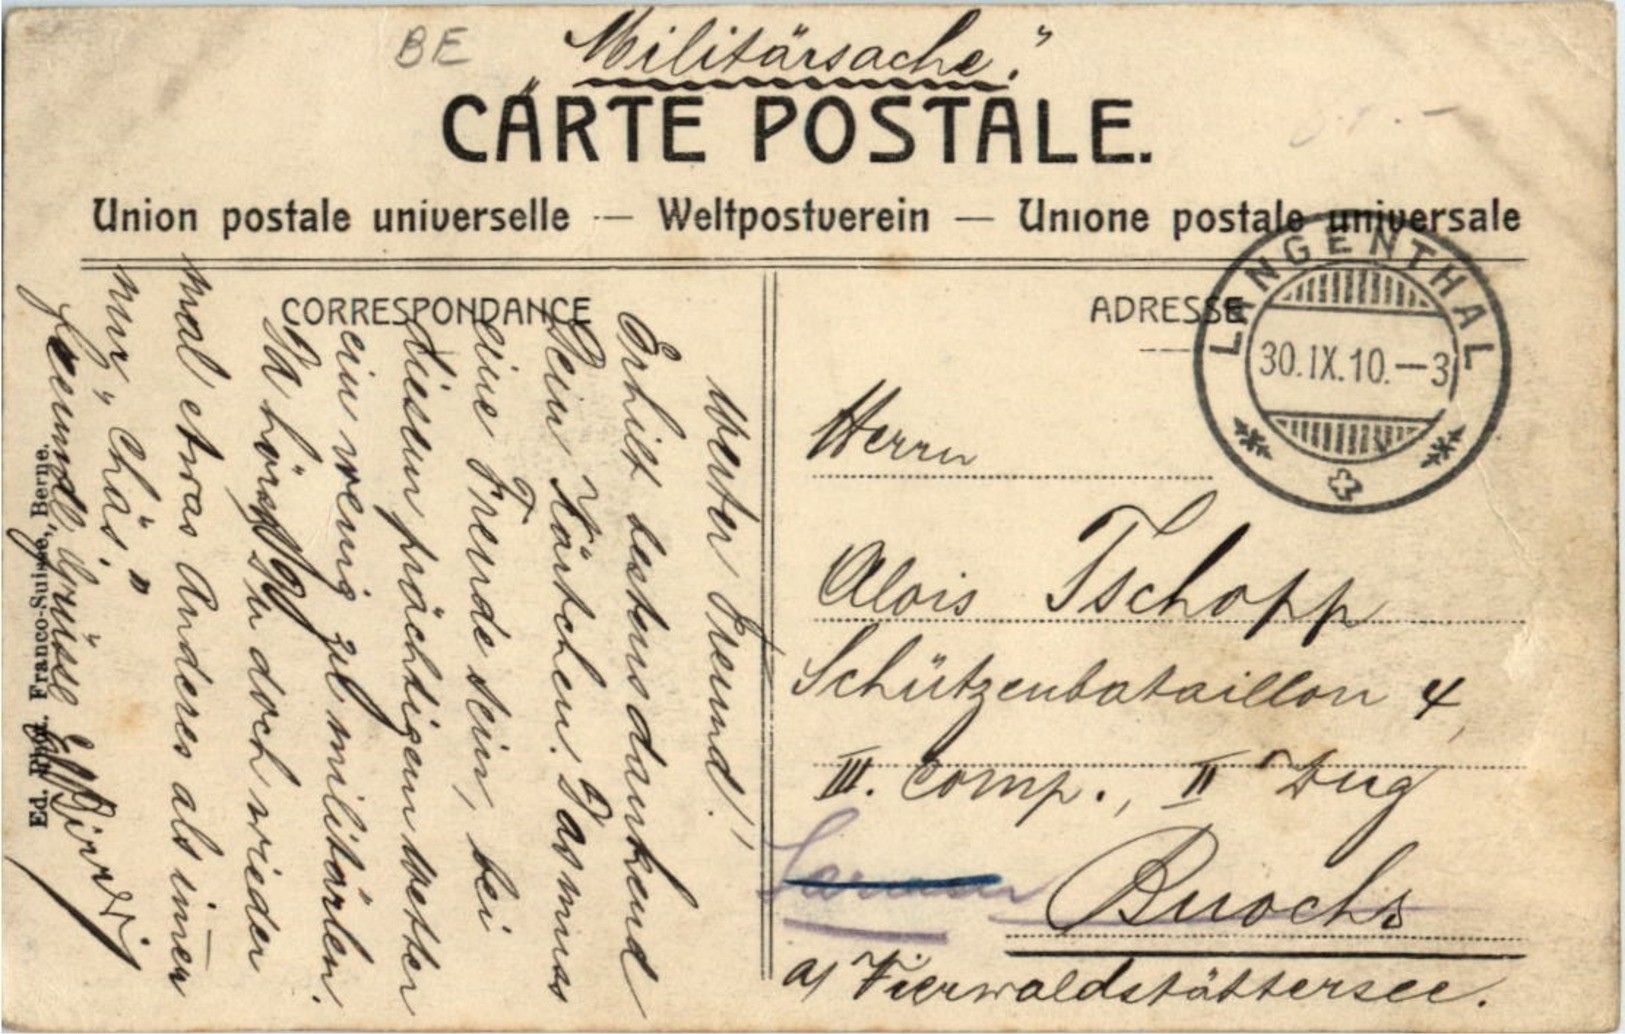 BE
"Militärsache."
CARTE POSTALE.
Union postale universelle — Weltpostverein — Unione postale universale
CORRESPONDANCE
Werter Freund!
Erhielt bestens dankend
Dein Kärtchen. Das muss
eine Freude sein, bei
diesem prächtigem Wetter
ein wenig zu militärlen.
Da hörst Du doch wieder
mal etwas Anderes als immer
nur „Chäs."
Freundl. Grüsse
Ed. Phot. Franco-Suisse, Berne.
ADRESSE
LANGENTHAL
30.IX.10.—3
Herrn
Alois Tschopp
Schützenbataillon 4,
III. Comp., II Zug
Sarnen
Buochs
a/ Vierwaldstättersee.